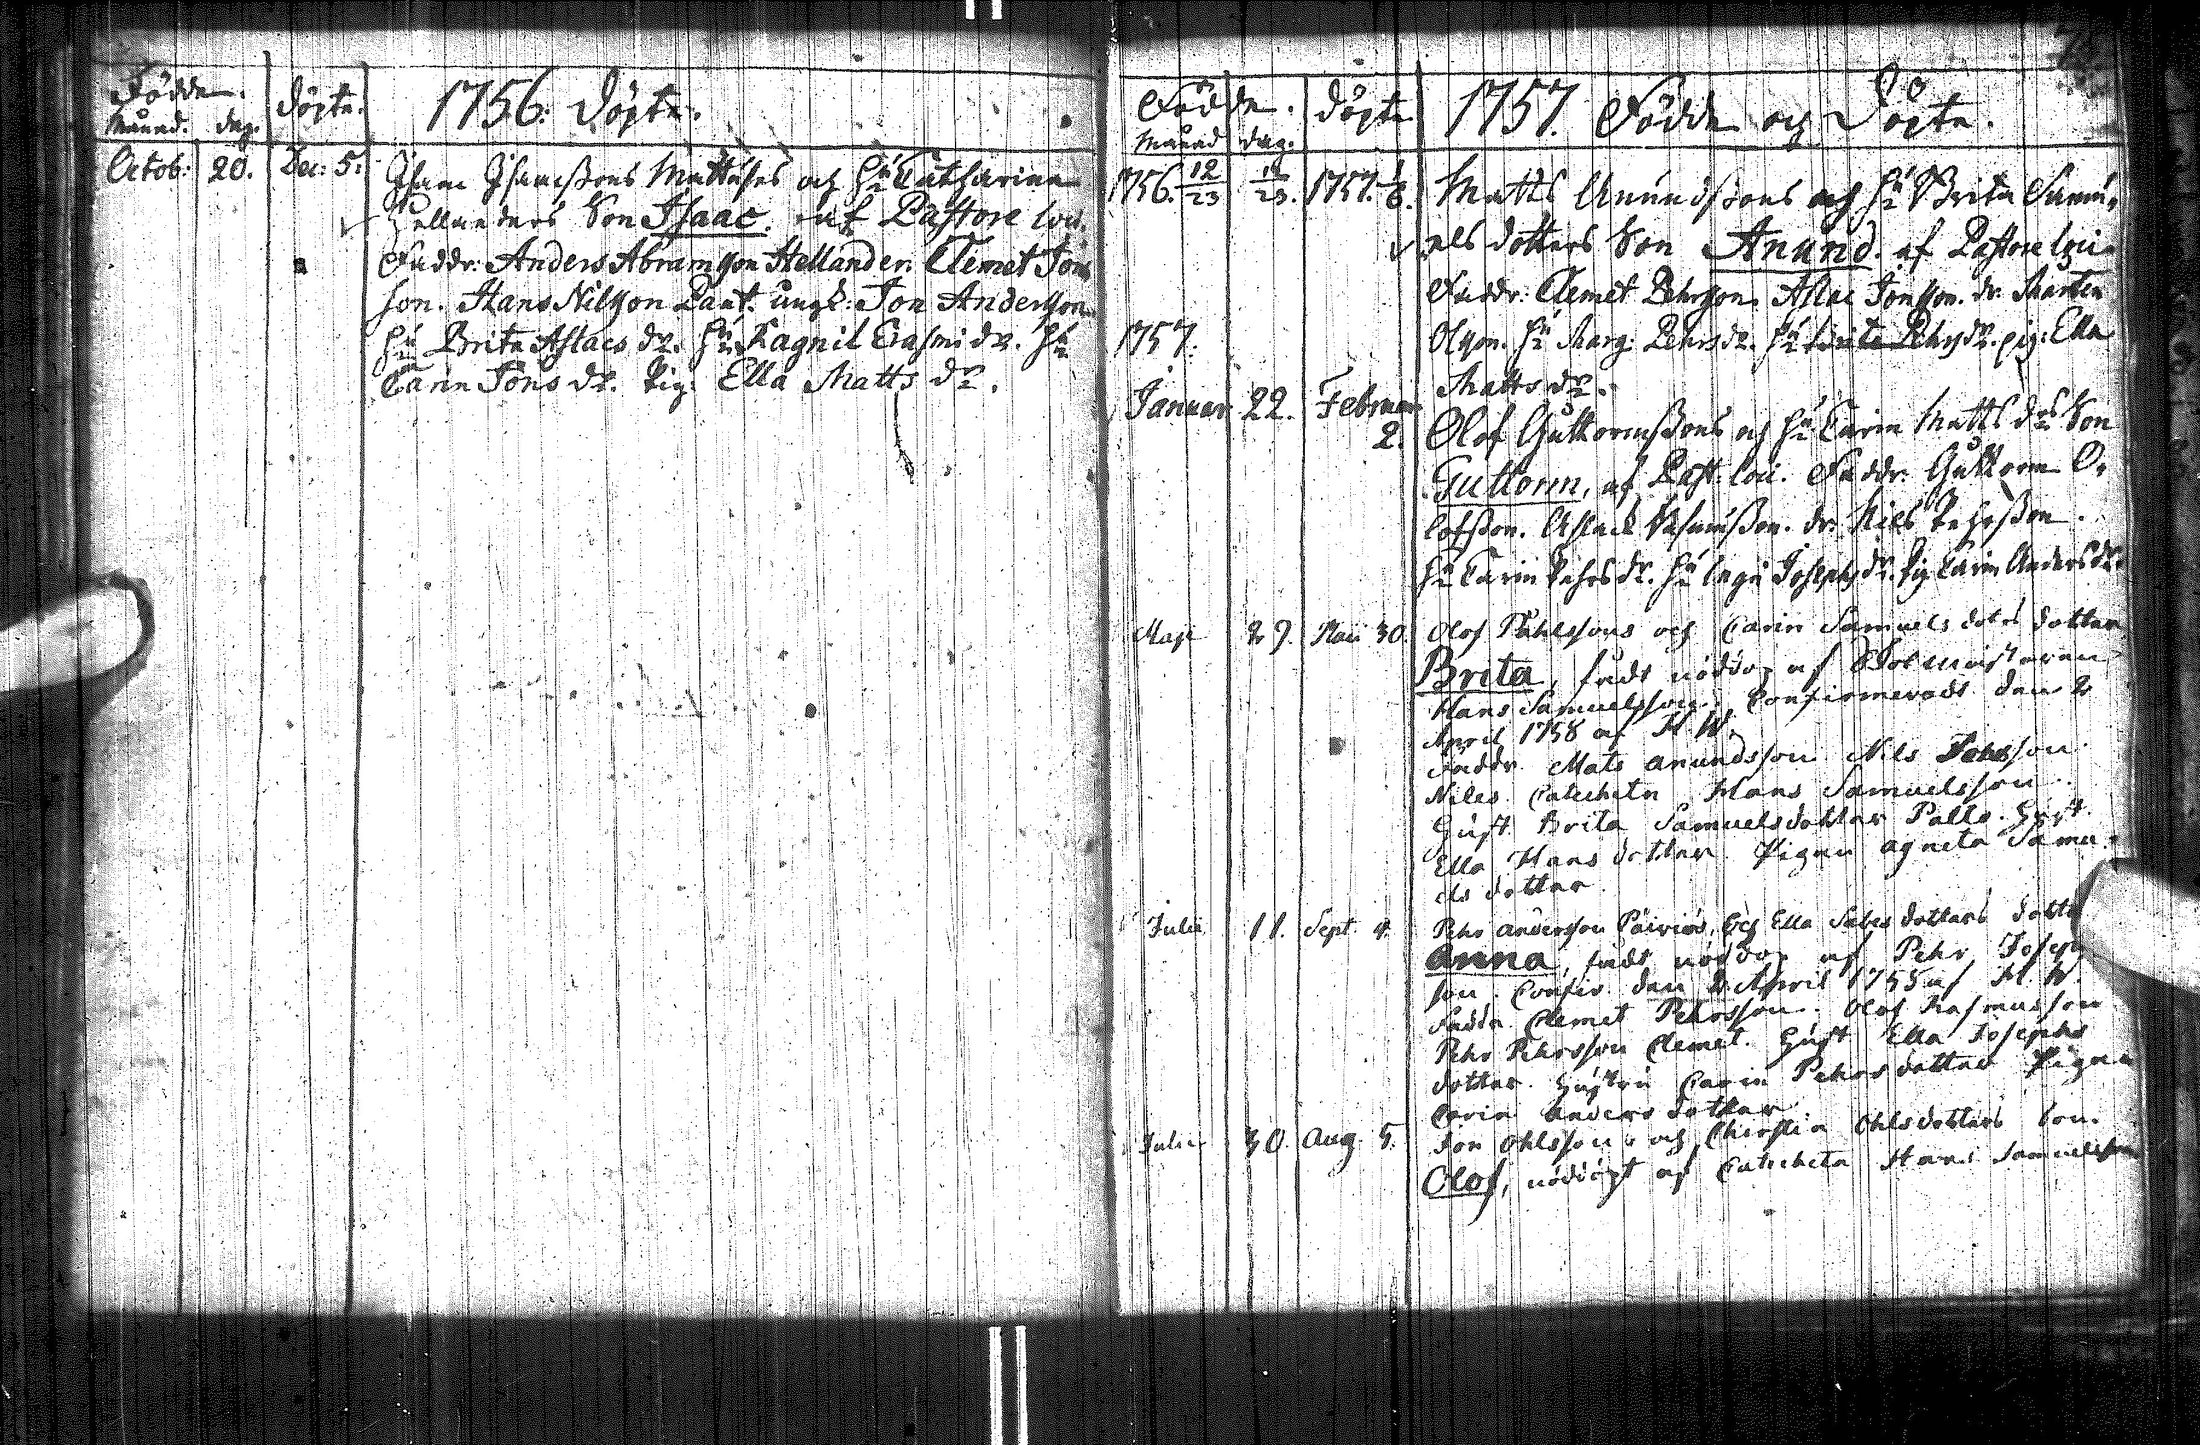 Födde.
Månad. dag.
döpte.
1756: Döpte.
Octob: 20. Dec: 5.
Isaac Isacssons Mattuses och Hu Catharina
Hellanders Son Isaac. af Pastore loci.
Faddr: Anders Abramsson Hellander. Clemet Jons
son. Hans Nilsson Paut. ungk: Jon Andersson.
Hu Brita Aslacs dr. Hu Ragnil Erasmi dr. Hu
Carin Jons dr. Pig: Ella Matts dr.
Födde.
Månad dag.
döpte
1757. Födde och Döpte.
1756. 12/23 12/23. 1757. 1/6.
Matts Anundssons och Hu Brita Samu,
els dotters Son Anund. af Pastore loci
Faddr: Clemet Pehrsson. Aslac Jonsson. dr. Mårten
Olsson. Hu Marg: Pehrsdr. Hu Brita Pehrsdr. pig: Ella
Matts dr.
1757.
Januar 22. Februar
2.
Olof Guttormssons och Hu Carin Matts drs Son
Guttorm, af Past: loci. Faddr: Guttorm O,
lofsson. Aslack Rasmusson. dr: Nils Pehrsson.
Hu Carin Pehrsdr. Hu Inga Josephsdr. Pig Carin Andersdr.
Maji 27. Maii 30.
Olof Påhlssons och Carin Samuels dotrs dotter
Brita, fådt nöddop af Skolmästaren
Hans Samuelsson, Confirmerads den 2
April 1758 af H W.
Faddr Mats Anundsson Nils Pehrsson
Niles Catecheta Hans Samuelsson.
Hust Brita Samuelsdotter Palto. Hust.
Ella Hans dotter Pigan Agneta Samu,
els dotter
Julii 11. Sept 4.
Pehr Andersson Päiviös, och Ella Sabes dotters dotte
Anna, fådt nöddop af Pehr Joseph
son. Confir. den 2 April 1758 af H. W.
Fadde Clemet Pehrsson. Olof Rasmusson
Pehr Pehrsson Clemet. Hust Ella Josephs
dotter. Hustru Carin Pehrs dotter Pigan
Carin Anders dotter.
Julii 30. Aug. 5.
Jon Ohlssons och Christin Ohlsdotters Son.
Olof, nöddöpt af Catecheta Hans Samuelsson